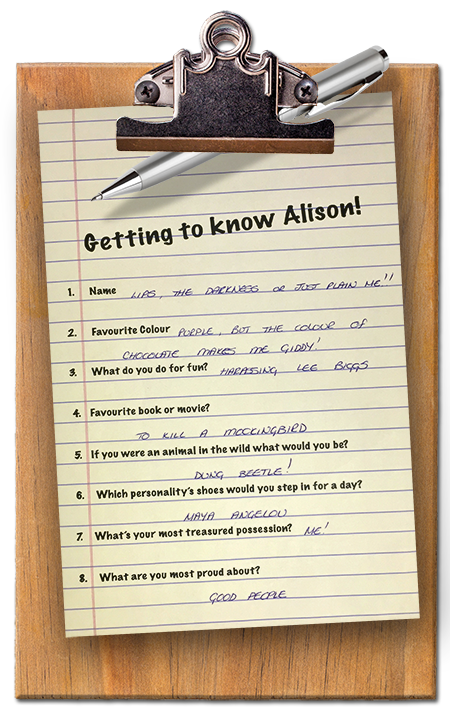 Getting to know Alison!
1. Name LIPS, THE DARKNESS OR JUST PLAIN ME!!
2. Favourite Colour PURPLE, BUT THE COLOUR OF
CHOCOLATE MAKES ME GIDDY!
3. What do you do for fun? HARASSING LEE BIGGS
4. Favourite book or movie?
TO KILL A MOCKINGBIRD
5. If you were an animal in the wild what would you be?
DUNG BEETLE!
6. Which personality's shoes would you step in for a day?
MAYA ANGELOU
7. What's your most treasured possession? ME!
8. What are you most proud about?
GOOD PEOPLE